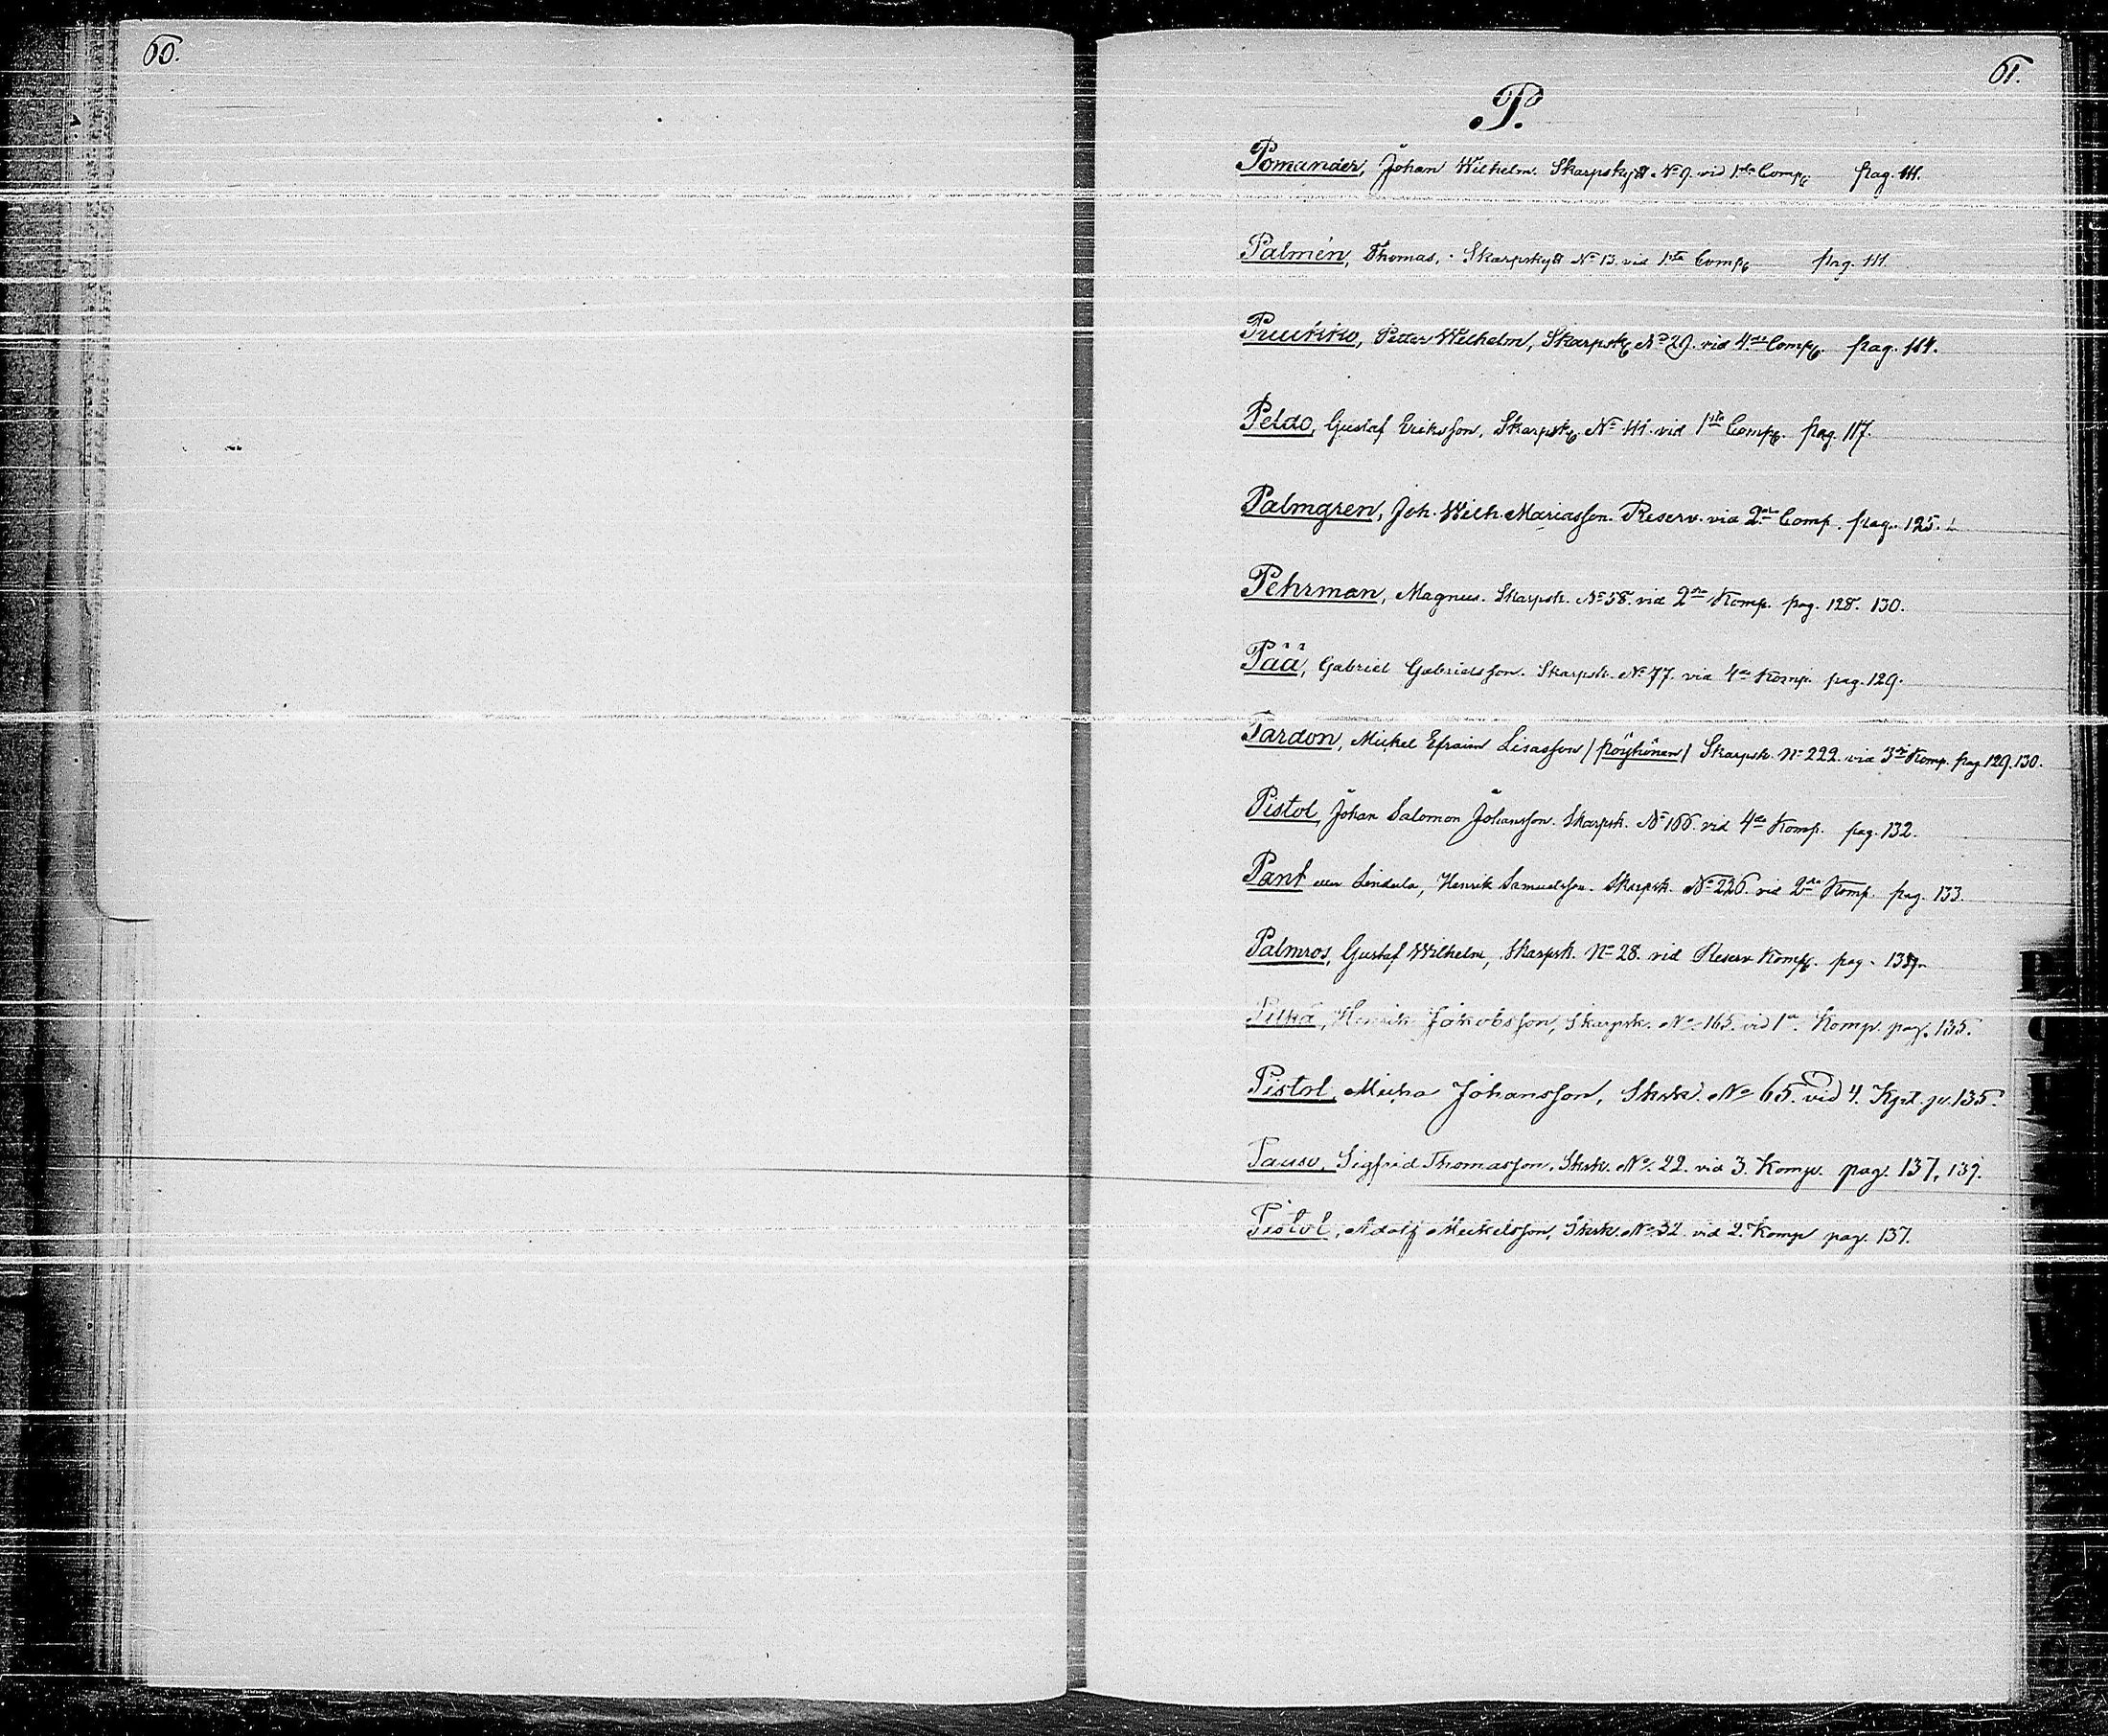 60.
61.
P.
Pomander, Johan Wilhelm. Skarpskytt No 9. vid 1sta Comp. pag. 111.
Palmén, Thomas. Skarpskytt No 13. vid 1sta Comp. pag. 111.
Puukko, Petter Wilhelm, Skarpsk. No 29. vid 4de Comp. pag. 114.
Peldo, Gustaf Eriksson, Skarpsk. No 41. vid 1sta Comp. pag. 117.
Palmgren, Joh. Wilh. Mariasson. Reserv. vid 2dra Comp. pag. 125.
Pehrman, Magnus. Skarpsk. No 58. vid 2dra Komp. pag. 128. 130.
Pää, Gabriel Gabrielsson. Skarpsk. No 77. vid 4de Komp. pag. 129.
Pardon, Mickel Efraim Lisasson / Pöyhönen / Skarpsk. No 222. vid 3dje Komp. pag. 129. 130.
Pistol, Johan Salomon Johansson. Skarpsk. No 166. vid 4de Komp. pag. 132.
Pant eller Lindula, Henrik Samuelsson. Skarpsk. No 226. vid 2dra Komp. pag. 133.
Palmros, Gustaf Wilhelm, Skarpsk. No 28. vid Reserv Komp. pag.
Pitkä, Henrik Jakobsson, Skarpsk. No 165. vid 1a Komp. pag. 135.
Pistol, Johansson, Skrsk. No 65. vid 4. 135.
Sigfrid Thomasson, Skrsk. No 22. vid 3. Komp. pag. 137, 139.
Pistol, Adolf Mickelsson, Skrsk. No 32. vid 2. Komp pag. 137.
P